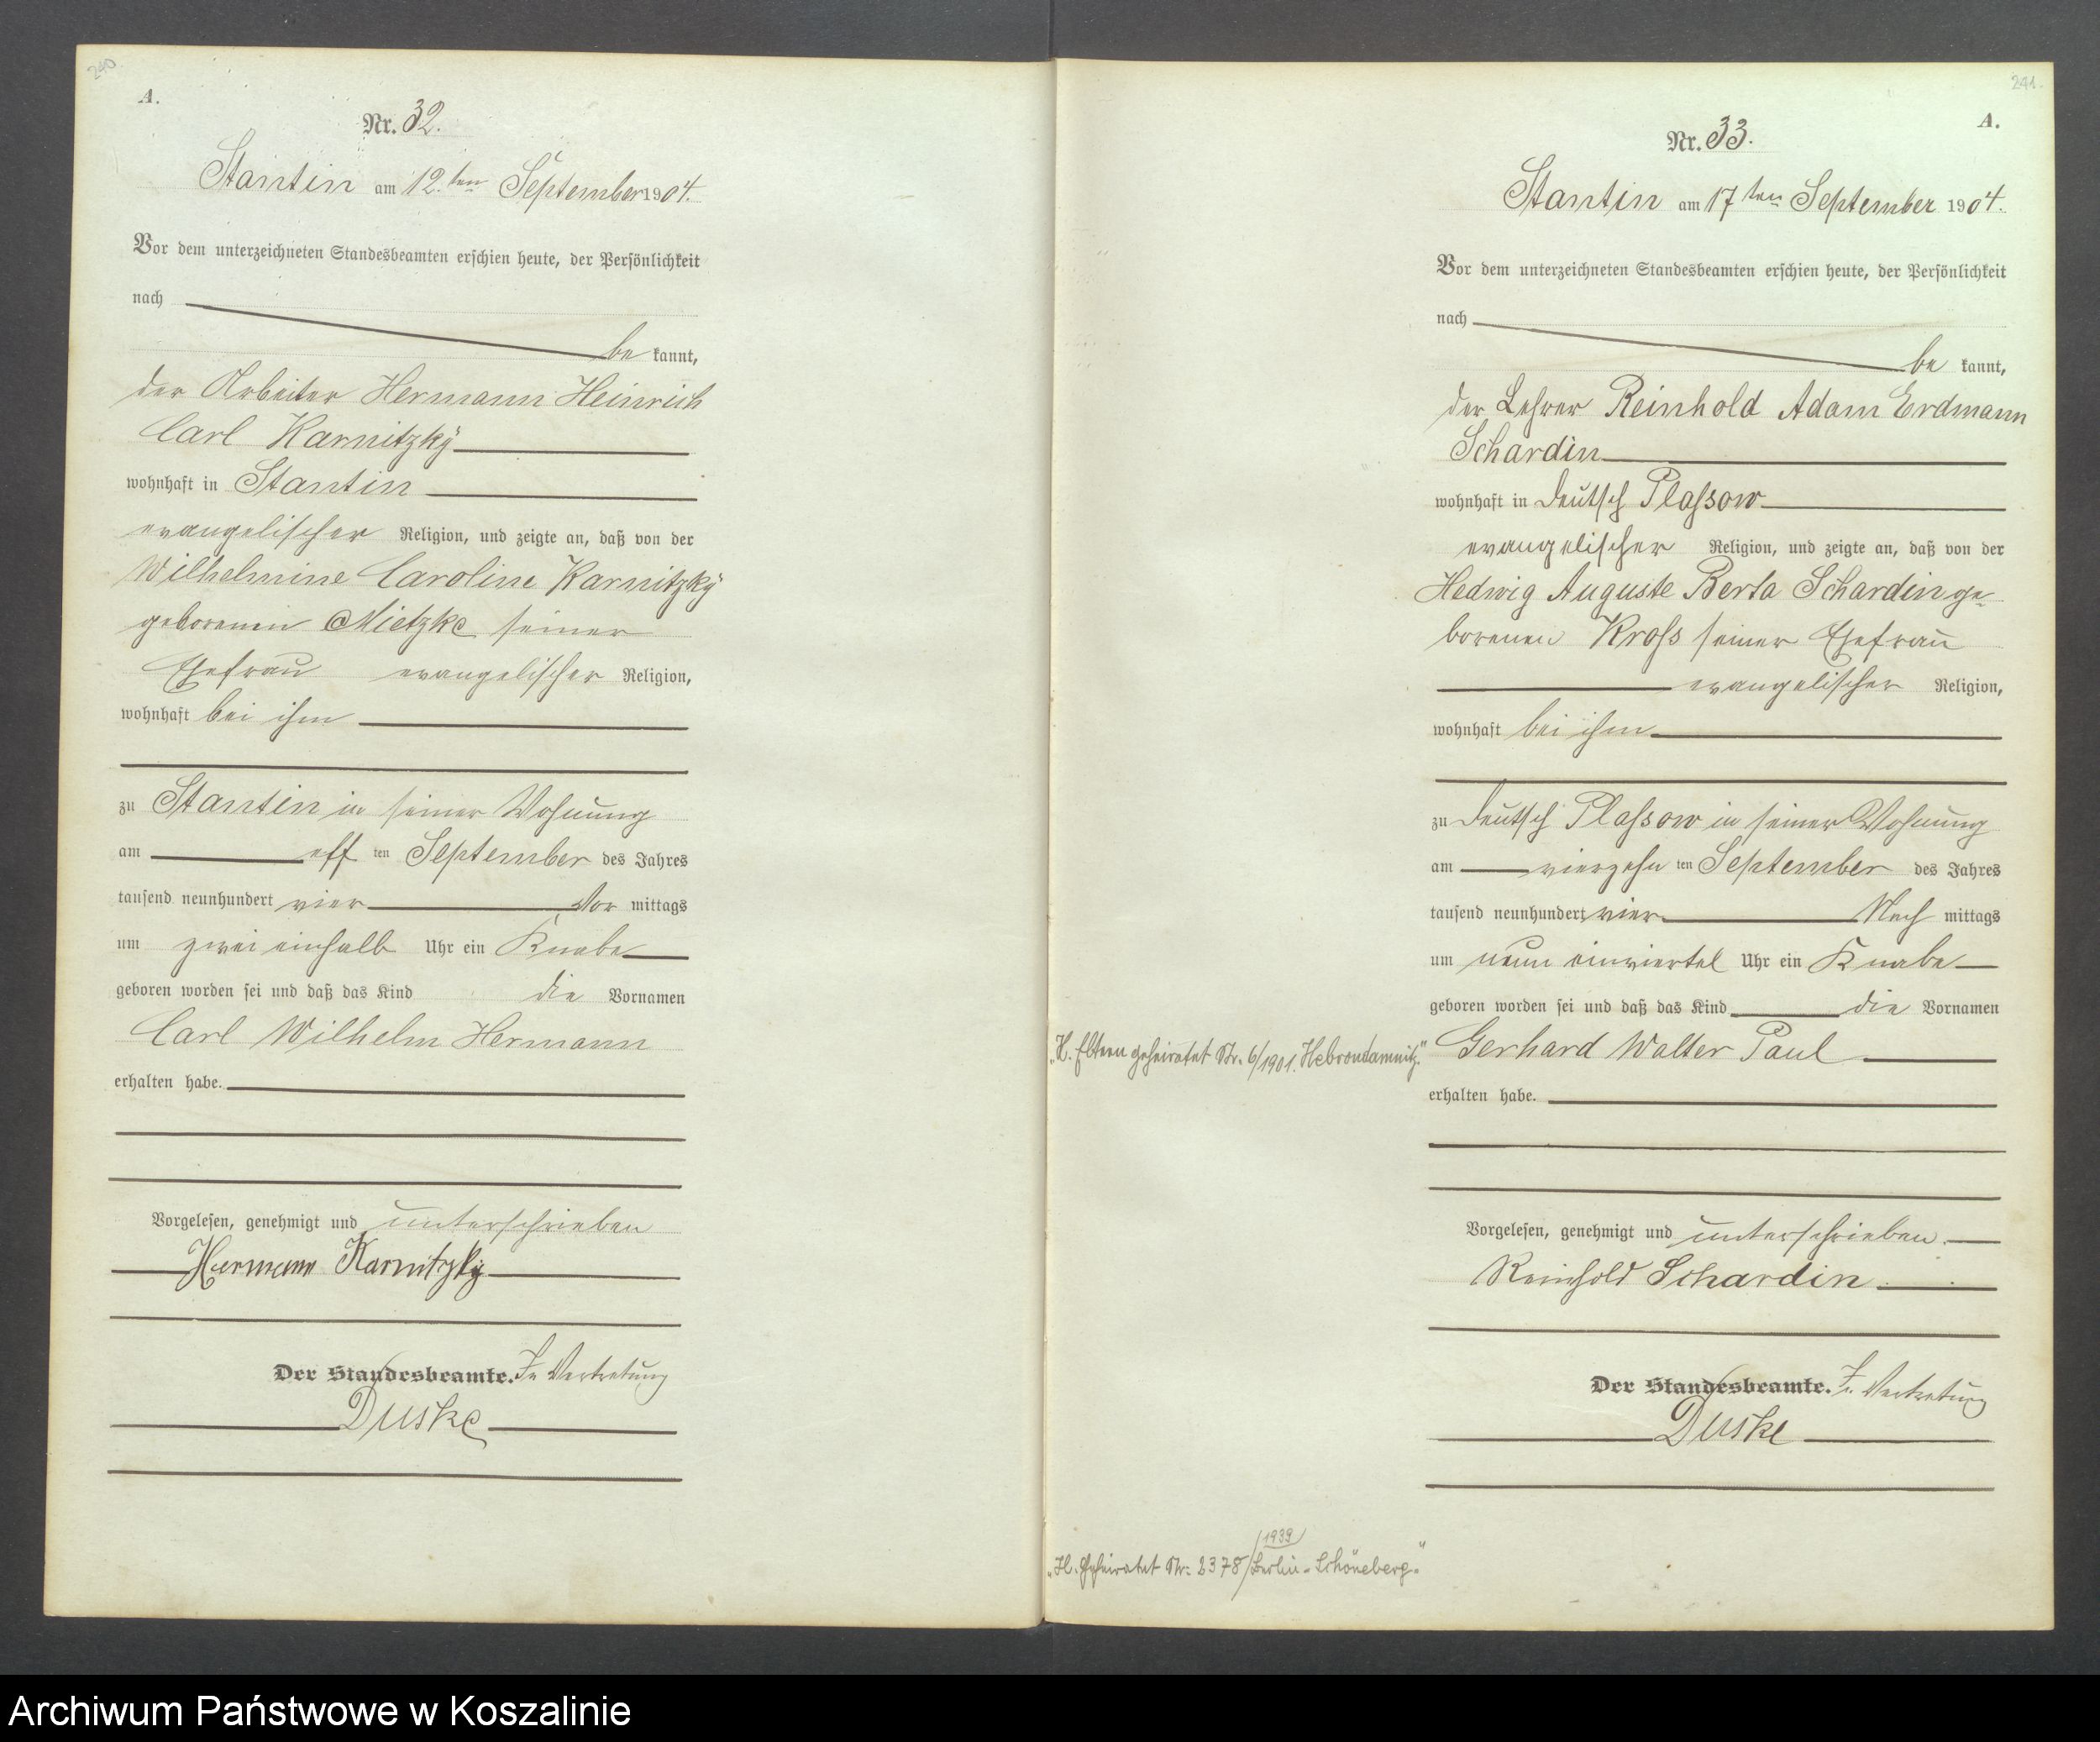 240.
A.
Nr. 32.
Stantin am 12. ten September 1904.
Vor dem unterzeichneten Standesbeamten erschien heute, der Persönlichkeit
nach
be kannt,
der Arbeiter Hermann Heinrich
Carl Karnitzky
wohnhaft in Stantin
evangelischer Religion, und zeigte an, daß von der
Wilhelmine Caroline Karnitzky
geborenen Mietzke seiner
Ehefrau evangelischer Religion,
wohnhaft bei ihm
zu Stantin in seiner Wohnung
am elf ten September des Jahres
tausend neunhundert vier Vor mittags
um zwei einhalb Uhr ein Knabe
geboren worden sei und daß das Kind die Vornamen
Carl Wilhelm Hermann
erhalten habe.
Vorgelesen, genehmigt und unterschrieben
Hermann Karnitzky
Der Standesbeamte. In Vertretung
Duske
241.
A.
Nr. 33.
Stantin am 17 ten September 1904.
Vor dem unterzeichneten Standesbeamten erschien heute, der Persönlichkeit
nach
be kannt,
der Lehrer Reinhold Adam Erdmann
Schardin
wohnhaft in Deutsch Plassow
evangelischer Religion, und zeigte an, daß von der
Hedwig Auguste Berta Schardin ge-
borenen Kross seiner Ehefrau
evangelischer Religion,
wohnhaft bei ihm
zu Deutsch Plassow in seiner Wohnung
am vierzehn ten September des Jahres
tausend neunhundert vier Nach mittags
um neun einviertel Uhr ein Knabe
geboren worden sei und daß das Kind die Vornamen
Gerhard Walter Paul
erhalten habe.
Vorgelesen, genehmigt und unterschrieben.
Reinhold Schardin
Der Standesbeamte. In Vertretung
Duske
„H. Eltern geheiratet Nr. 6/1901. Hebrondamnitz."
„H. Geheiratet Nr. 2378/1939 Berlin-Schöneberg."
Archiwum Państwowe w Koszalinie